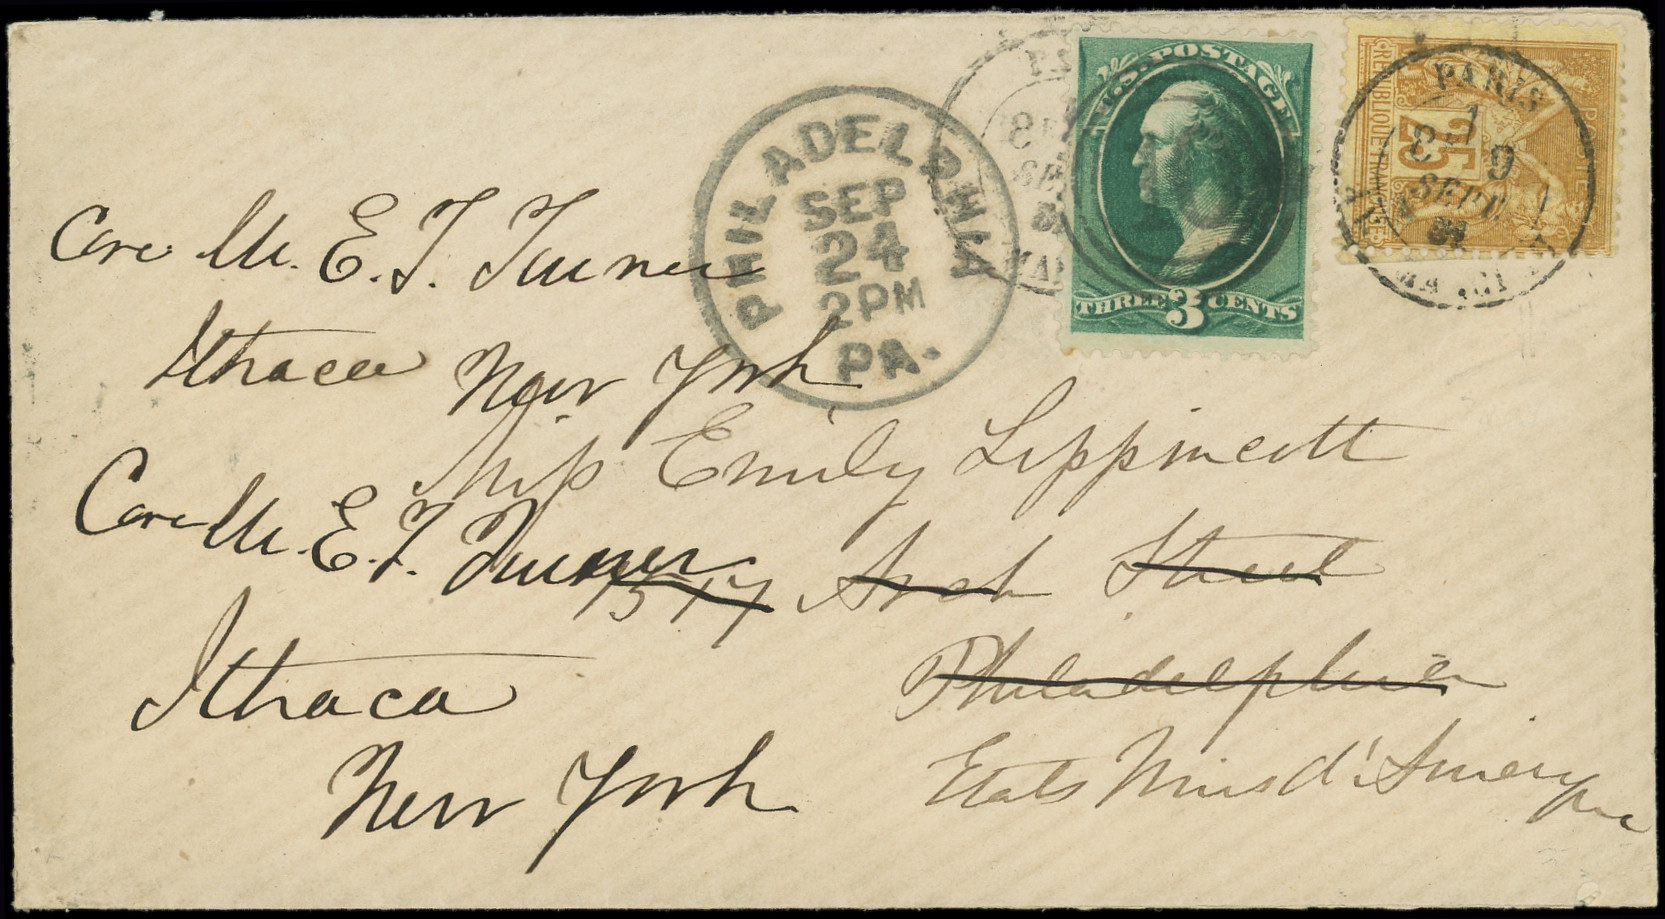 U.S. POSTAGE
THREE 3 CENTS
REPUBLIQUE FRANÇAISE
POSTES
25
PARIS
9
SEPT
PHILADELPHIA
SEP
24
2PM
PA.
Care Mr. E. T. Turner
Ithaca New York
Miss Emily Lippincott
Care Mr. E. T. Turner
1517 Arch Street
Ithaca
Philadelphia
New York
Etats Unis d'Amerique